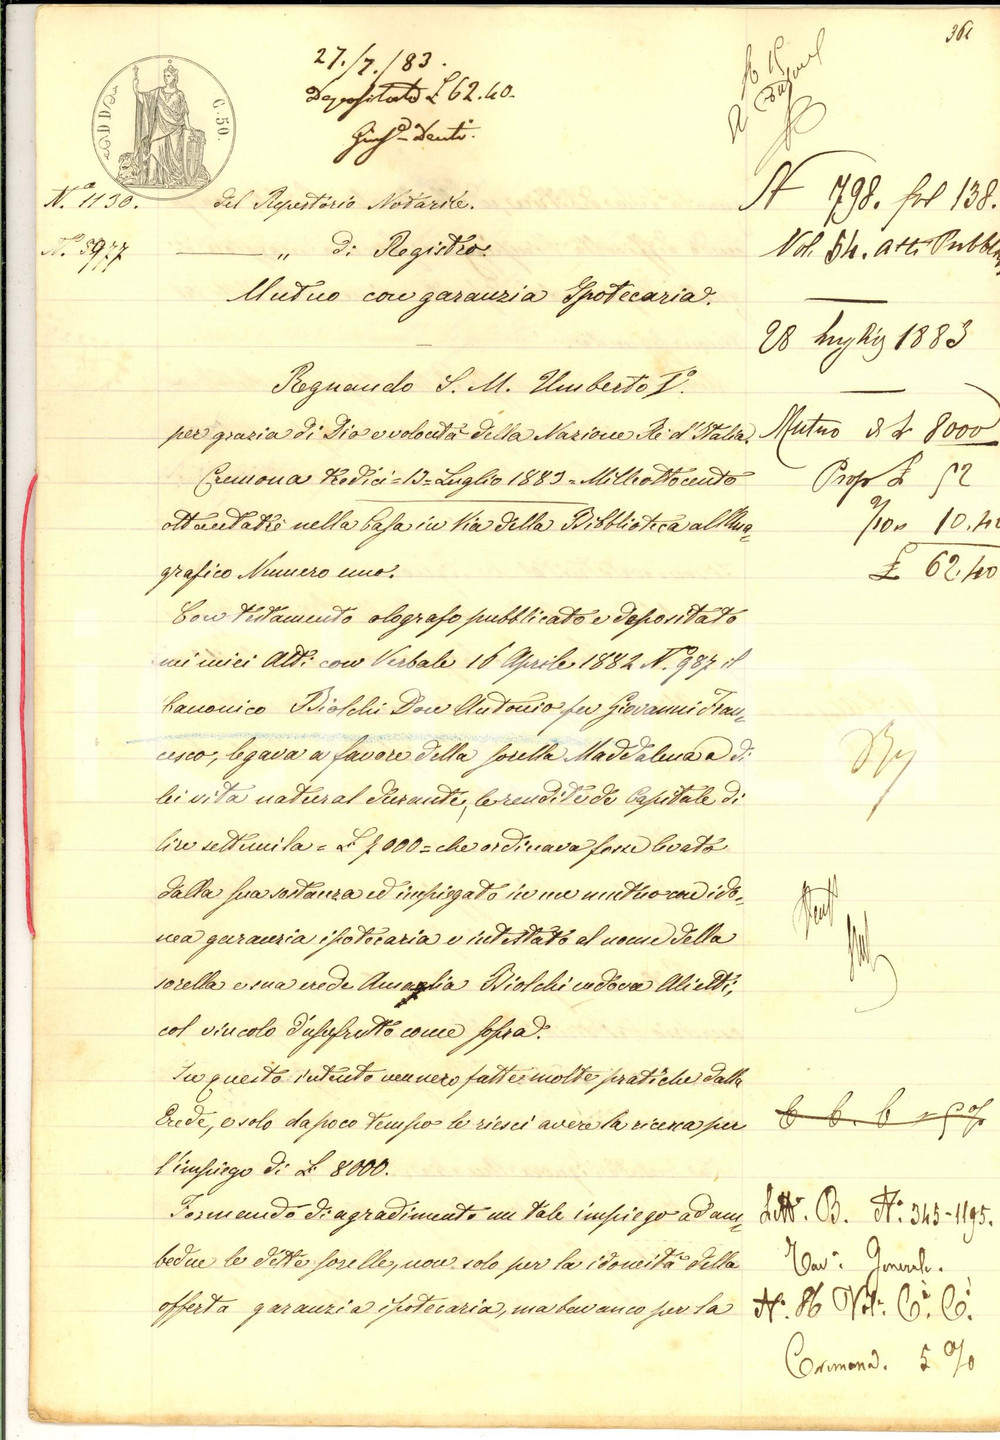 361
27./7./83.
Depositate £ 62.40.
Gius.e Denti.
C. 50.
N.° 1130. del Repertorio Notarile.
N.° 3977 — " di Registro.
Mutuo con garanzia Ipotecaria.
Regnando S. M. Umberto I.°
per grazia di Dio e volontà della Nazione Re d'Italia.
Cremona tredici = 13 = Luglio 1883 = Milleottocento
ottantatre nella Casa in Via della Biblioteca all'Ana-
grafico Numero uno.
Con testamento olografo pubblicato e depositato
nei miei Atti con Verbale 16 Aprile 1882 N.° 987 il
Canonico Biolchi Don Antonio fu Giovanni Fran-
cesco, legava a favore della sorella Maddalena e di
lei vita natural durante, le rendite de Capitale di
lire settemila = £ 7000 = che ordinava fosse levato
dalla sua sostanza ed impiegato in un mutuo con ido-
nea garanzia ipotecaria e intestato al nome della
sorella e sua erede Amaglia Biolchi vedova Alietti,
col vincolo d'usufrutto come sopra.
In questo intento vennero fatte molte pratiche dalla
Erede, e solo da poco tempo le riesci avere la ricerca per
l'impiego di £ 8000.
Tornando di aggradimento un tale impiego ad am-
bedue le dette sorelle, non solo per la idoneità della
offerta garanzia ipotecaria, ma ben anco per la
N 798. fol 138.
Vol. 54. atti Pubbl
28 luglio 1883
Mutuo di £ 8000
Prop £ 52
2/10i 10.40
£ 62.40
Lett. B. N.° 345-1195.
Tav.a Generale.
N.° 86 Vol.
Cremona. 5 %